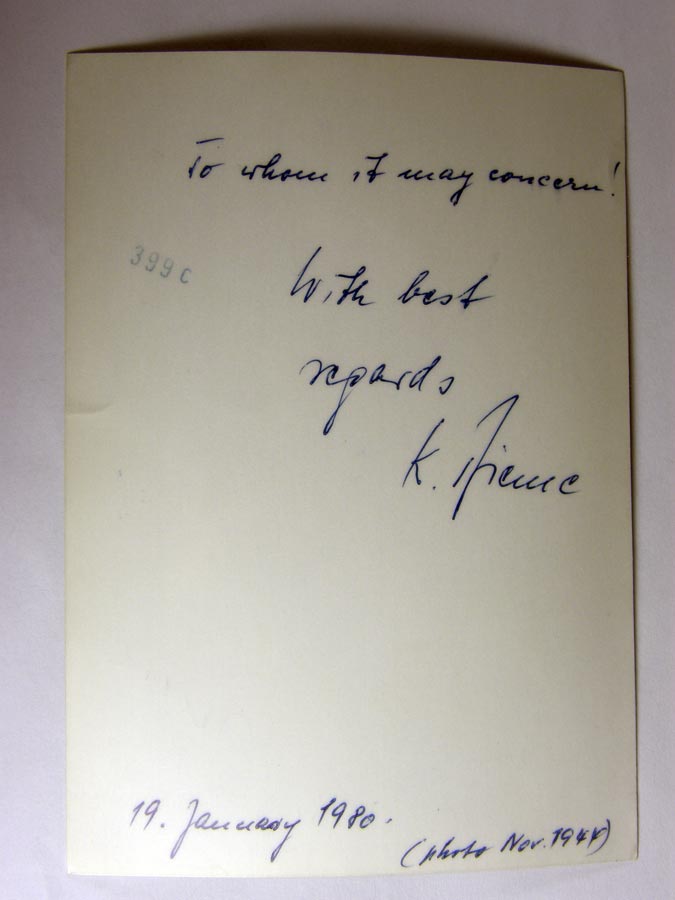 To whom it may concern!
399c
With best
regards
K.
19. January 1980.
(photo Nov. 1944)